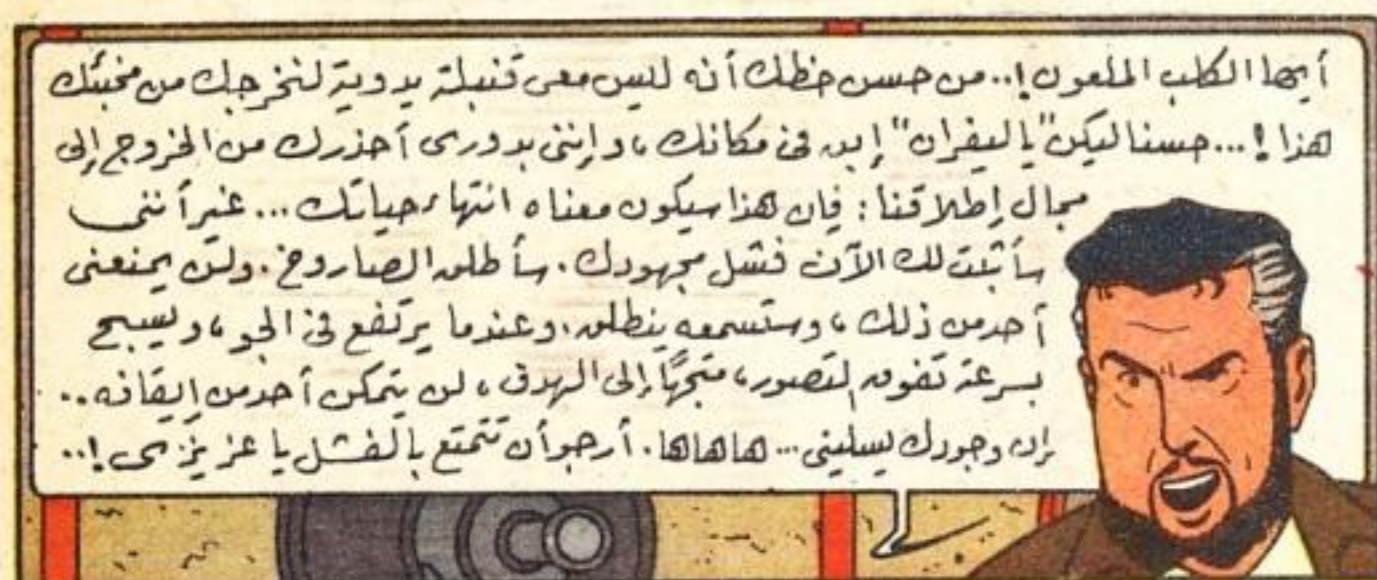 أيها الكلب الملعون!.. من حسن حظك أنه ليس معى قنبلة يدوية لنخرجك من مخبئك
هذا!... حسنا ليكن "ياليفران" إبق فى مكانك، وإننى بدورى أحذرك من الخروج إلى
مجال إطلاقنا: فإن هذا سيكون معناه انتهاء حياتك... غير أننى
سأثبت لك الآن فشل مجهودك. سأطلق الصاروخ. ولن يمنعنى
أحد من ذلك، وستسمعه ينطلق، وعندما يرتفع فى الجو، ويسبح
بسرعة تفوق التصور، متجهًا إلى الهدف، لن يتمكن أحد من إيقافه..
إن وجودك يسلينى... هاهاها. أرجو أن تتمتع بالفشل يا عزيزى!..